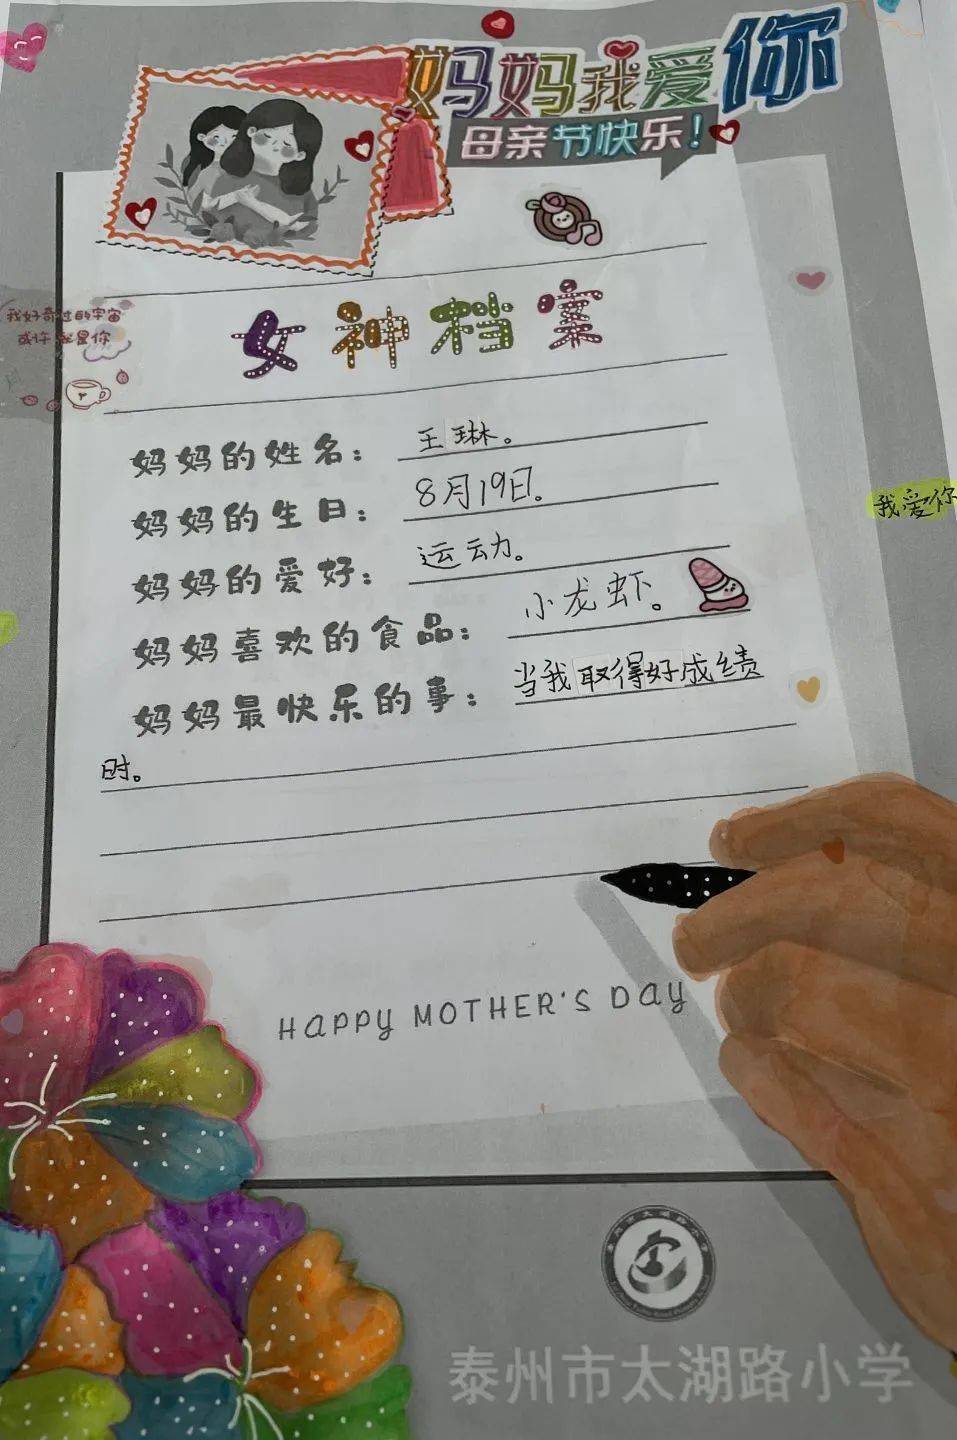 妈妈我爱你
母亲节快乐!
女神档案
我好奇过的宇宙
或许就是你
妈妈的姓名: 王琳。
妈妈的生日: 8月19日。
妈妈的爱好: 运动。
妈妈喜欢的食品: 小龙虾。
我爱你
妈妈最快乐的事: 当我取得好成绩
时。
HAPPY MOTHER'S DAY
泰州市太湖路小学